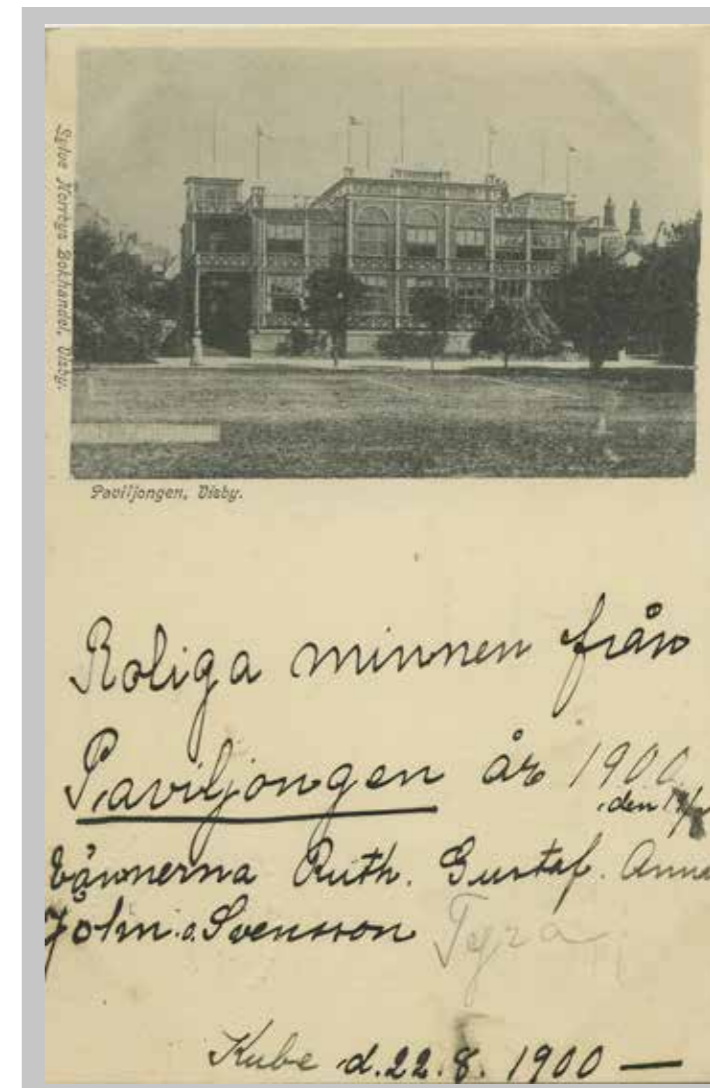 Sylve Norrbys Bokhandel, Visby.
Paviljongen, Visby.
Roliga minnen från
Paviljongen år 1900
den
Vännerna Ruth. Gustaf. Anna
John. o. Svensson Tyra
Kube d. 22. 8. 1900 —